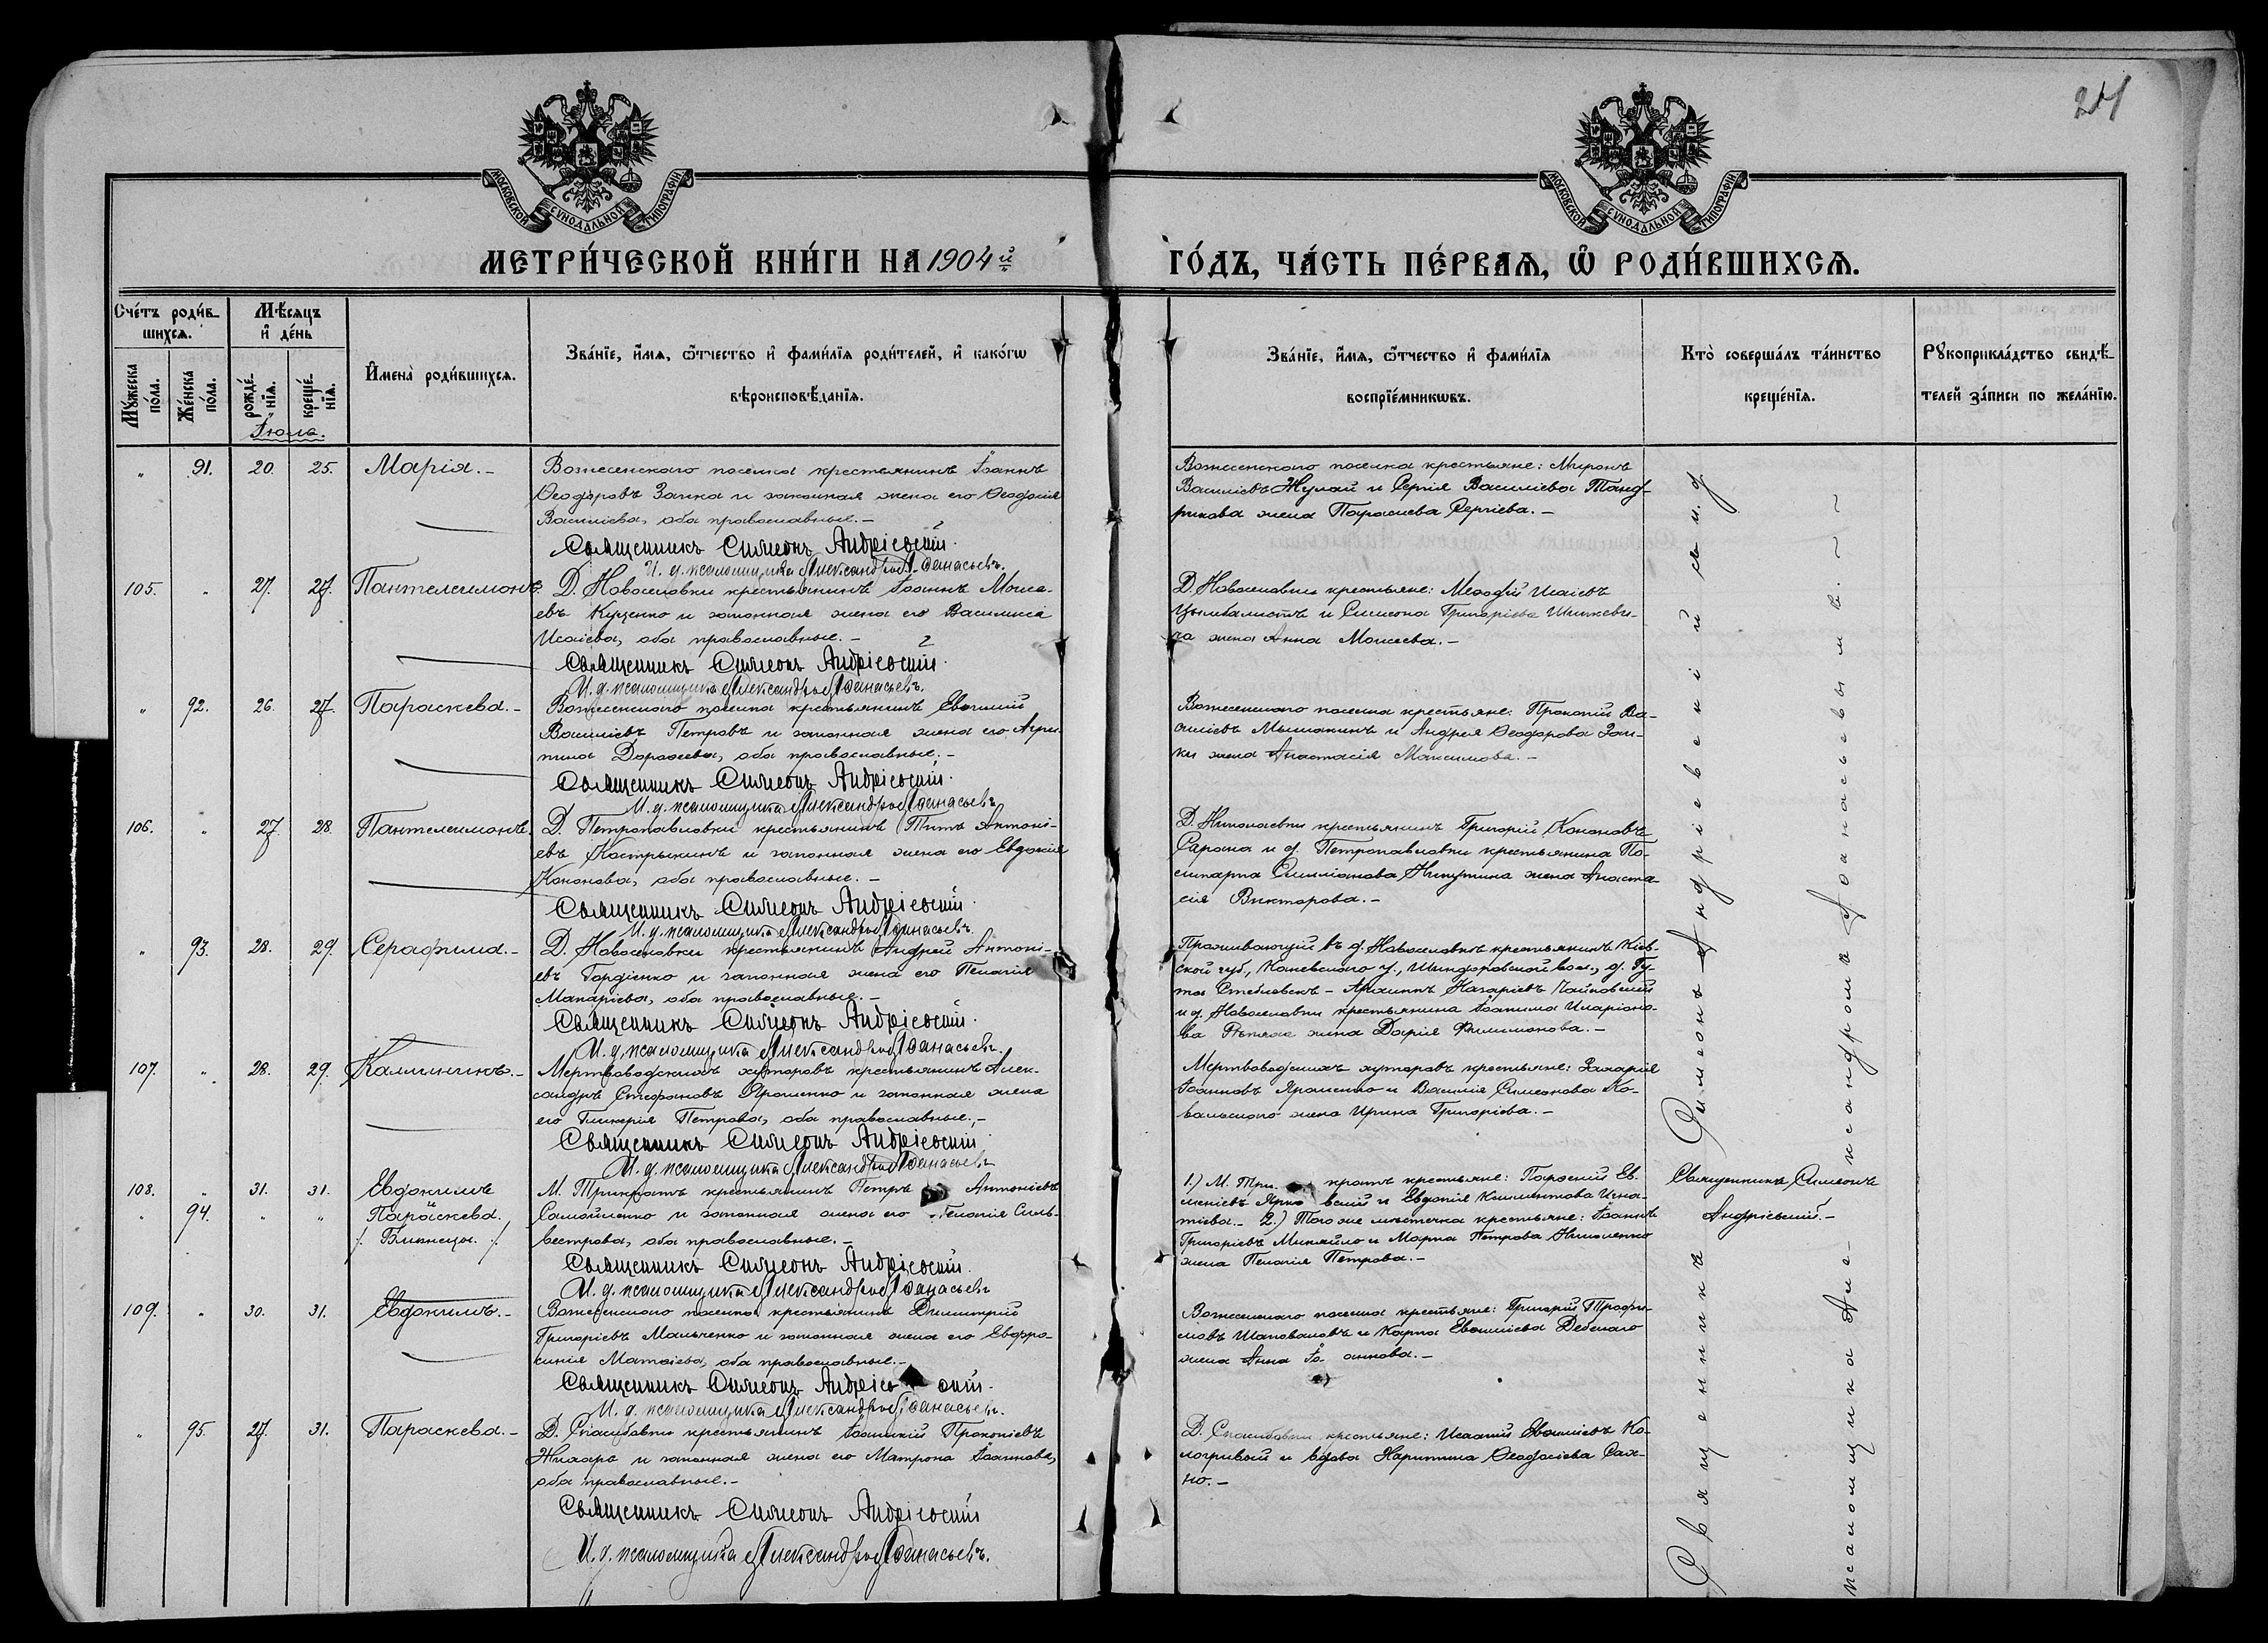 24
МОСКОВСКОЙ СУНОДАЛЬНОЙ ТИПОГРАФІИ
МОСКОВСКОЙ СУНОДАЛЬНОЙ ТИПОГРАФІИ
МЕТРИ́ЧЕСКОЙ КНИ́ГИ НА 1904й ГО́ДЪ, ЧА́СТЬ ПЕ́РВАѦ, Ѡ РОДИ́ВШИХСѦ.
Сче́тъ роди́в-
шихсѧ.
Мꙋ́жеска по́ла.
Же́нска по́ла.
Мѣ́сяцъ
и҆ де́нь
рожде́-нїѧ.
креще́-нїѧ.
Іюль.
И҆мена̀ роди́вшихсѧ.
Зва́нїе, и҆́мѧ, ѻ҆́тчество и҆ фами́лїѧ роди́телей, и҆ како́гѡ
вѣроисповѣ́данїѧ.
Зва́нїе, и҆́мѧ, ѻ҆́тчество и҆ фами́лїѧ
воспрїе́мникѡвъ.
Кто̀ соверша́лъ та́инство
креще́нїѧ.
Рꙋкоприкла́дство свидѣ́-
телей за́писи по жела́нїю.
" 91. 20. 25. Марія.-
Вознесенскаго поселка крестьянинъ Іоаннъ
Ѳеодоровъ Заика и законная жена его Ѳеодосія
Василіева, оба православные.-
Священникъ Симеонъ Андріевскій.
И. д. псаломщика Александръ Аѳанасьевъ.
Вознесенскаго поселка крестьяне: Миронъ
Василіевъ Жулай и Сергія Василіева
жена Параскева Сергіева.-
105. " 27. 27. Пантелеимонъ.
Д. Новоселовки крестьянинъ Іоаннъ Моисе-
евъ Куценко и законная жена его Василиса
Исаіева, оба православные.-
Священникъ Симеонъ Андріевскій.
И. д. псаломщика Александръ Аѳанасьевъ.
Д. Новоселовки крестьяне: Меѳодій Исаіевъ
и Симеона Григоріева Шинкеви-
ча жена Анна Моисеева.-
" 92. 26. 27. Параскева.-
Вознесенскаго поселка крестьянинъ Евѳимій
Василіевъ Петровъ и законная жена его Агри-
пина Дороѳеева, оба православные.-
Священникъ Симеонъ Андріевскій.
И. д. псаломщика Александръ Аѳанасьевъ
Вознесенскаго поселка крестьяне: Прокопій Ва-
силіевъ Мышакинъ и Андрея Ѳеодорова Заи-
ки жена Анастасія Максимова.-
106. " 27. 28. Пантелеимонъ.
Д. Петропавловки крестьянинъ Титъ Антоні-
евъ Кострыкинъ и законная жена его Евдокія
Кононова, оба православные.-
Священникъ Симеонъ Андріевскій.
И. д. псаломщика Александръ Аѳанасьевъ.
Д. Николаевки крестьянинъ Григорій Кононовъ
Сарана и д. Петропавловки крестьянина По-
ликарпа Никутина жена Анаста-
сія Викторова.-
" 93. 28. 29. Серафима.-
Д. Новоселовки крестьянинъ Андрей Антоні-
евъ Гордіенко и законная жена его Пелагія
Макаріева, оба православные.-
Священникъ Симеонъ Андріевскій.
И. д. псаломщика Александръ Аѳанасьевъ.
Проживающій въ д. Новоселовкѣ крестьянинъ Кіев-
ской губ., Каневскаго у., Шендеровской вол., д. Гу-
та Стеблевская - Архиппъ Назаріевъ Чайковскій
и д. Новоселовки крестьянина Іоакима Иларіоно-
ва жена Дарія Филимонова.-
107. " 28. 29. Каллиникъ.-
Мертвоводскихъ хуторовъ крестьянинъ Алек-
сандръ Стефановъ Ярошенко и законная жена
его Гликерія Петрова, оба православные.-
Священникъ Симеонъ Андріевскій
И. д. псаломщика Александръ Аѳанасьевъ
Мертвоводскихъ хуторовъ крестьяне: Захарія
Іоанновъ Ярошенко и Василія Симеонова Ко-
вальскаго жена Ирина Григоріева.-
108. " 31. 31. Евдокимъ
" 94. " " и Параскева.
/. Близнецы. ./
М. Трикратъ крестьянинъ Петръ Антоніевъ
Самойленко и законная жена его Пелагія Силь-
вестрова, оба православные.-
Священникъ Симеонъ Андріевскій.
И. д. псаломщика Александръ Аѳанасьевъ
1.) М. Три- кратъ крестьяне: Ев-
меніевъ Ярко вскій и Евдокія Климентова Игна-
тіева.- 2.) Того же мѣстечка крестьяне: Іоаннъ
Григоріевъ Михайло и Марка Петрова Николенко
жена Пелагія Петрова.-
Священникъ Симеонъ
Андріевскій.-
109. " 30. 31. Евдокимъ.-
Вознесенскаго поселка крестьянинъ Димитрій
Григоріевъ Мальченко и законная жена его Евфро-
синія Матѳіева, оба православные.-
Священникъ Симеонъ Андріевскій.
И. д. псаломщика Александръ Аѳанасьевъ.
Вознесенскаго поселка крестьяне: Григорій Трофи-
мовъ Шаповаловъ и Карпа Евѳиміева
жена Анна Іоаннова.-
" 95. 27. 31. Параскева.-
Д. Спасибовки крестьянинъ Іоанникій Прокопіевъ
Жихарь и законная жена его Матрона Іоаннова,
оба православные.-
Священникъ Симеонъ Андріевскій
И. д. псаломщика Александръ Аѳанасьевъ.
Д. Спасибовки крестьяне: Исаакій Евѳиміевъ Ко-
логривый и вдова Харитина Ѳеодосіева Сах-
но.-
Священникъ Симеонъ Андріевскій съ и. д.
псаломщика Александромъ Аѳанасьевымъ.-